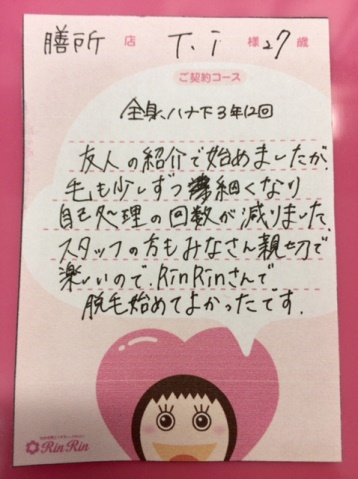 膳所 店 T. i 様 27 歳
ご契約コース
全身、ハナ下3年12回
友人の紹介で始めましたが、
毛も少しずつ細くなり
自己処理の回数が減りました。
スタッフの方もみなさん親切で
楽しいので、RinRinさんで
脱毛始めてよかったです。
RinRin